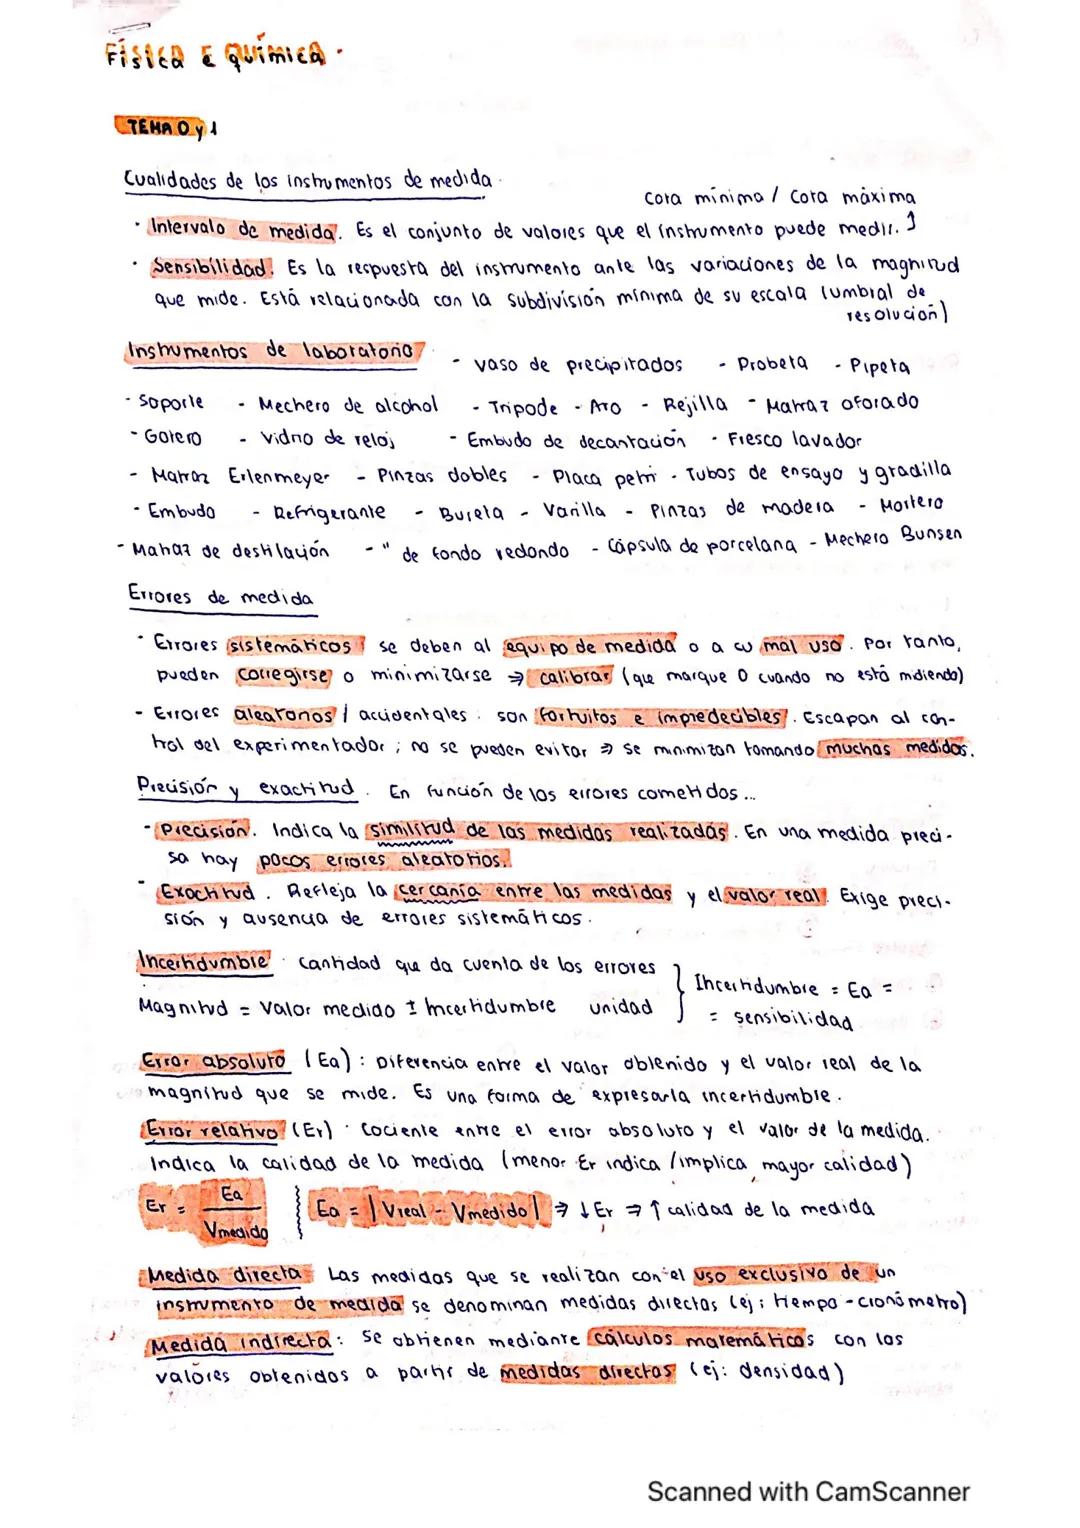 Física E Química.
TEMA 0 y 1
Cualidades de los instrumentos de medida.
Cota mínima / Cota máxima
· Intervalo de medida. Es el conjunto de valores que el instrumento puede medir.
· Sensibilidad. Es la respuesta del instrumento ante las variaciones de la magnitud
que mide. Está relacionada con la subdivisión mínima de su escala (umbral de
resolución)
Instrumentos de laboratorio - vaso de precipitados - Probeta - Pipeta
- Soporte - Mechero de alcohol - Trípode - Aro - Rejilla - Matraz aforado
- Gotero - Vidrio de reloj - Embudo de decantación - Fresco lavador
- Matraz Erlenmeyer - Pinzas dobles - Placa petri - Tubos de ensayo y gradilla
- Embudo - Refrigerante - Bureta - Varilla - Pinzas de madera - Mortero
- Matraz de destilación - " de fondo redondo - Cápsula de porcelana - Mechero Bunsen
Errores de medida
· Errores sistemáticos se deben al equipo de medida o a su mal uso. Por tanto,
pueden corregirse o minimizarse ⇒ calibrar (que marque 0 cuando no está midiendo)
- Errores aleatorios / accidentales: son fortuitos e impredecibles. Escapan al con-
trol del experimentador; no se pueden evitar ⇒ se minimizan tomando muchas medidas.
Precisión y exactitud. En función de los errores cometidos...
- Precisión. Indica la similitud de las medidas realizadas. En una medida preci-
sa hay pocos errores aleatorios.
- Exactitud. Refleja la cercanía entre las medidas y el valor real. Exige preci-
sión y ausencia de errores sistemáticos.
Incertidumbre. cantidad que da cuenta de los errores
Magnitud = Valor medido ± Incertidumbre unidad } Incertidumbre = Ea =
= sensibilidad
Error absoluto (Ea): Diferencia entre el valor obtenido y el valor real de la
magnitud que se mide. Es una forma de expresarla incertidumbre.
Error relativo (Er). Cociente entre el error absoluto y el valor de la medida.
Indica la calidad de la medida (menor Er indica / implica mayor calidad)
Er = Ea / Vmedido } Ea = | Vreal - Vmedido | ⇒ ↓ Er ⇒ ↑ calidad de la medida
Medida directa Las medidas que se realizan con el uso exclusivo de un
instrumento de medida se denominan medidas directas (ej: tiempo - cronómetro)
Medida indirecta: Se obtienen mediante cálculos matemáticos con los
valores obtenidos a partir de medidas directas (ej: densidad)
Scanned with CamScanner